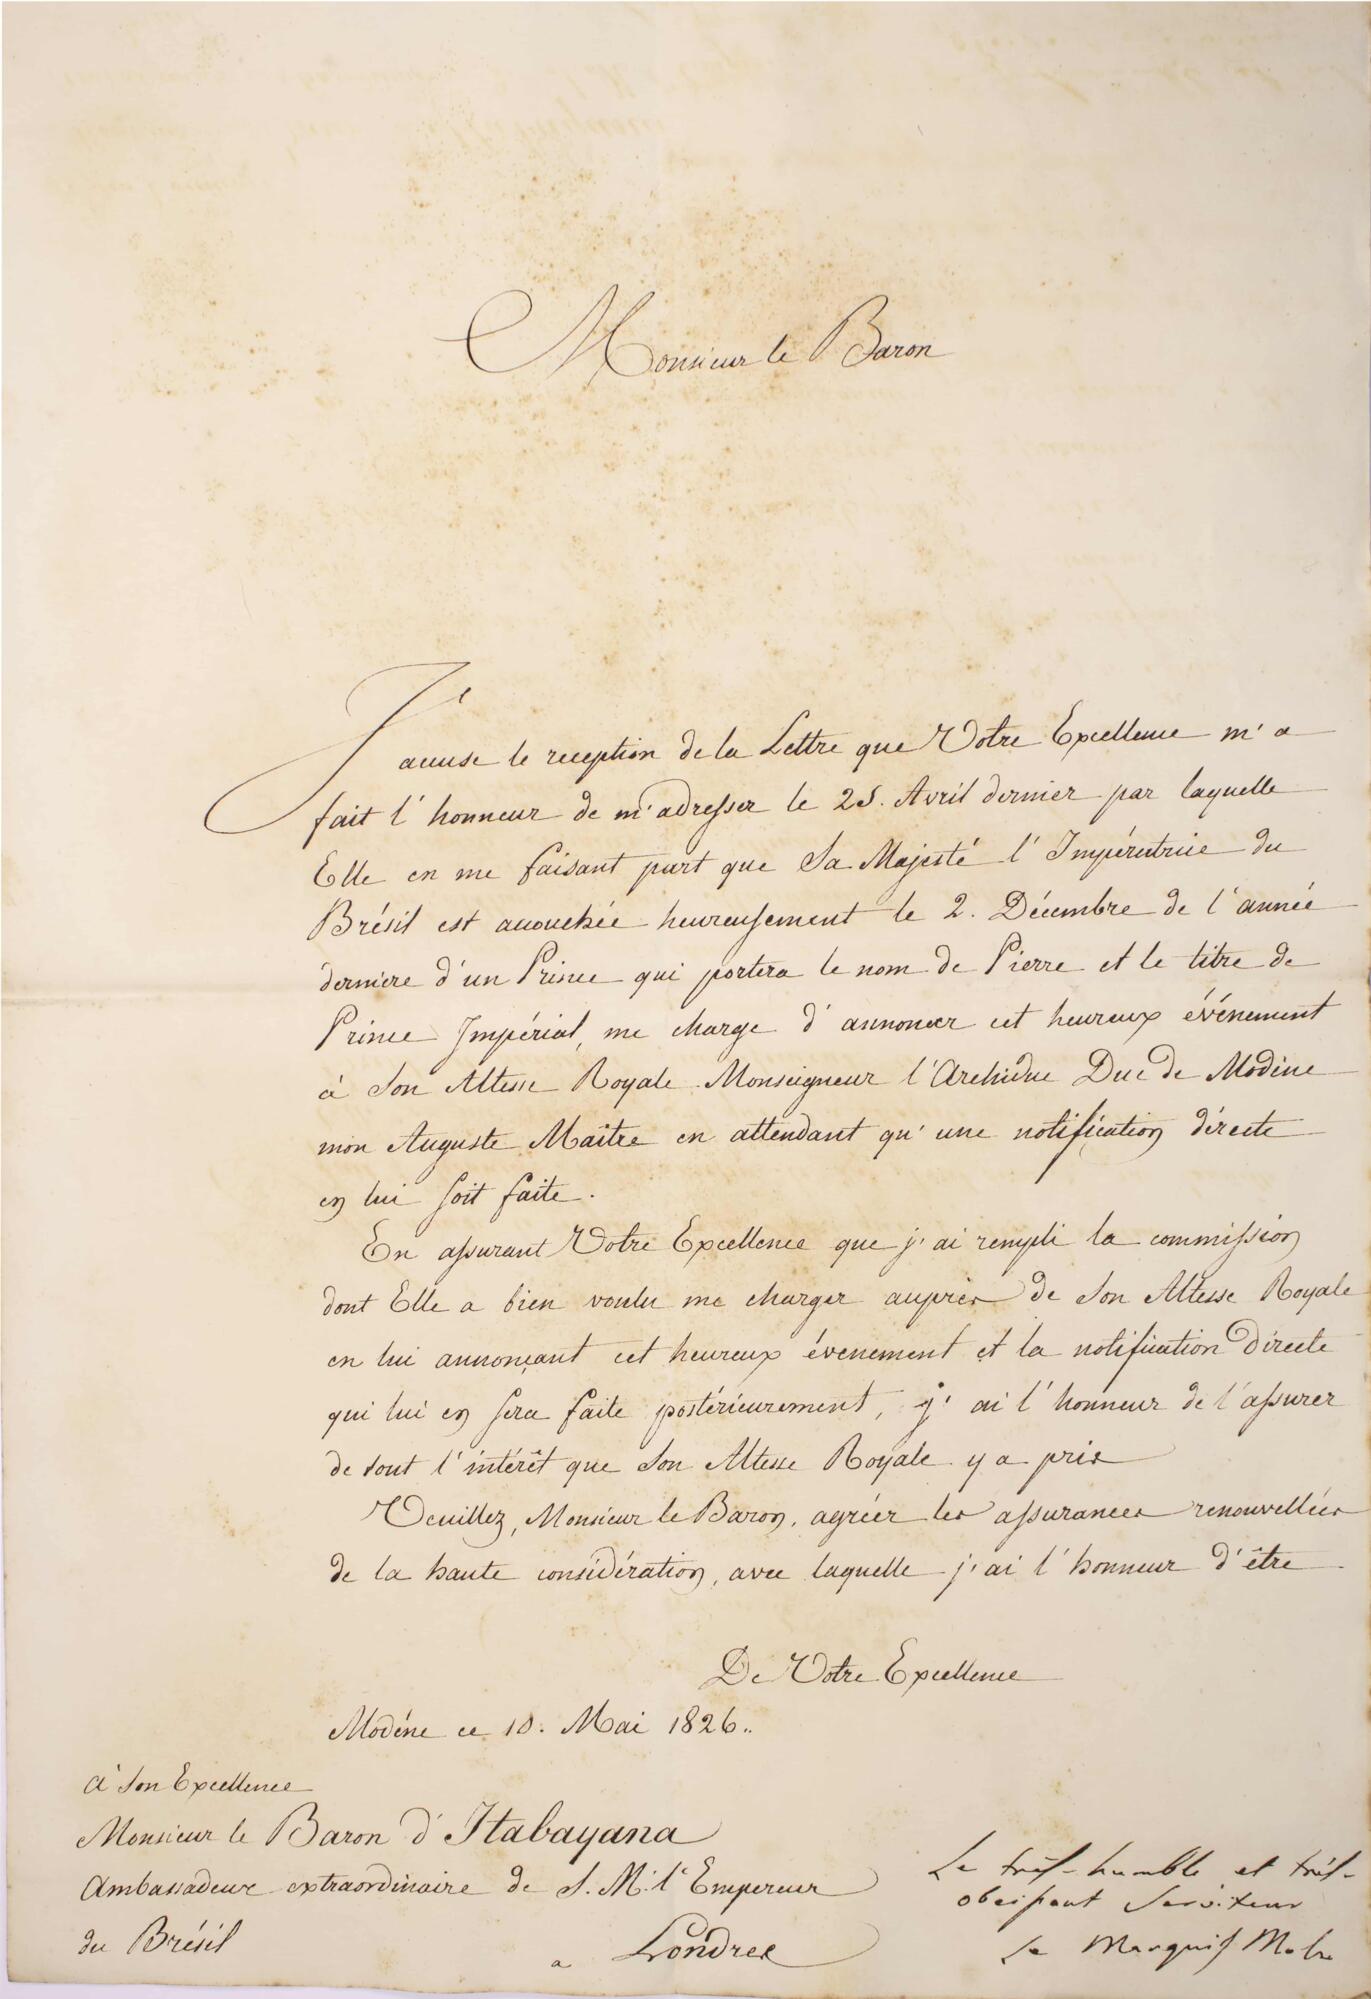 Monsieur le Baron
J'accuse le reception de la Lettre que Votre Excellence m'a
fait l'honneur de m'adresser le 25. Avril dernier par laquelle
Elle en me faisant part que Sa Majesté l'Impératrice du
Brésil est accouchée heureusement le 2. Décembre de l'année
derniere d'un Prince qui portera le nom de Pierre et le titre de
Prince Impérial, me charge d'annoncer cet heureux événement
à Son Altesse Royale Monseigneur l'Archiduc Duc de Modène
mon Auguste Maître en attendant qu'une notification directe
en lui soit faite.
En assurant Votre Excellence que j'ai rempli la commission
dont Elle a bien voulu me charger auprès de Son Altesse Royale
en lui annonçant cet heureux évenement et la notification directe
qui lui en sera faite postérieurement, j'ai l'honneur de l'assurer
de tout l'intérêt que Son Altesse Royale y a pris
Veuillez, Monsieur le Baron, agréer les assurances renouvellées
de la haute considération, avec laquelle j'ai l'honneur d'être
De Votre Excellence
Modéne ce 10. Mai 1826..
à Son Excellence
Monsieur le Baron d'Itabayana
Ambassadeur extraordinaire de S. M. l'Empereur
du Brésil
a Londres
Le très-humble et très-
obeissant Serviteur
Le Marquis Molza